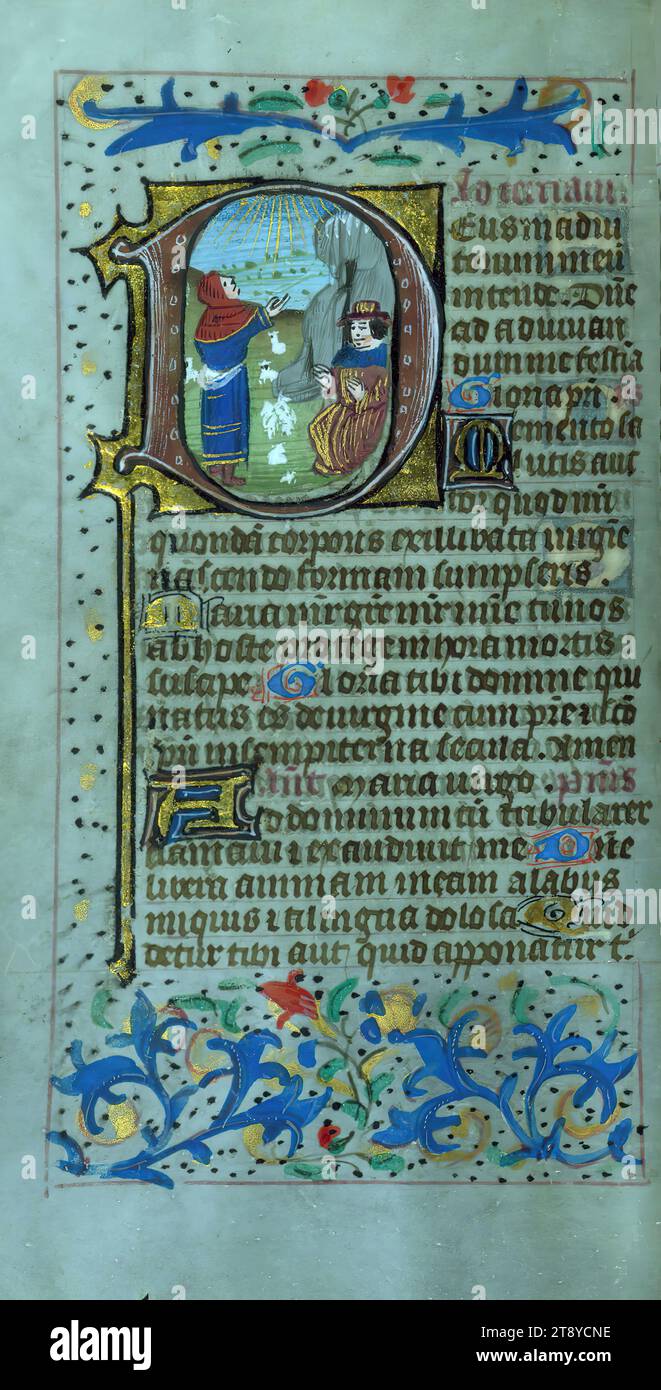 Ad terciam
Deus in adiu
torium meū
intende. Dn̄e
ad adiuuan
dum me festia
Gloria pr̄i.
Memento sa
lutis auc
tor quod nr̄i
quondā corporis ex illibata uirgīe
nascendo formam sumpseris.
Maria mr̄ grē mr̄ mīe tu nos
ab hoste protege in hora mortis
suscipe Gloria tibi domine qui
natus es de uirgine cum pr̄e & scō
spū in sempiterna secula. Amen
Ant̄ Maria uirgo. Psm̄s
Ad dominum cū tribularer
clamaui & exaudiuit me Dn̄e
libera animam meam a labiis
iniquis & a lingua dolosa Quid
detur tibi aut quid apponatur t̄
alamy
alamy
Image ID: 2T8YCNE
www.alamy.com